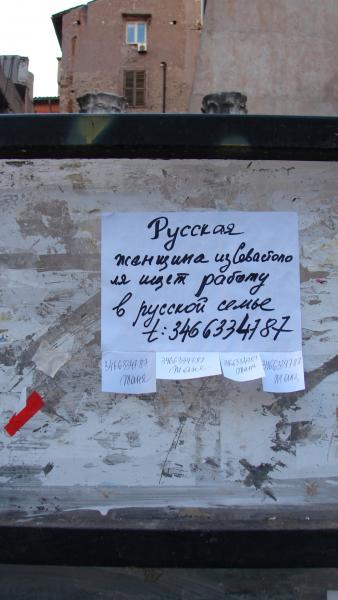 Русская
женщина изСевастопо
ля ищет работу
в русской семье
t: 3466334787
3466334787
таня
3466334787
таня
3466334787
таня
3466334787
таня